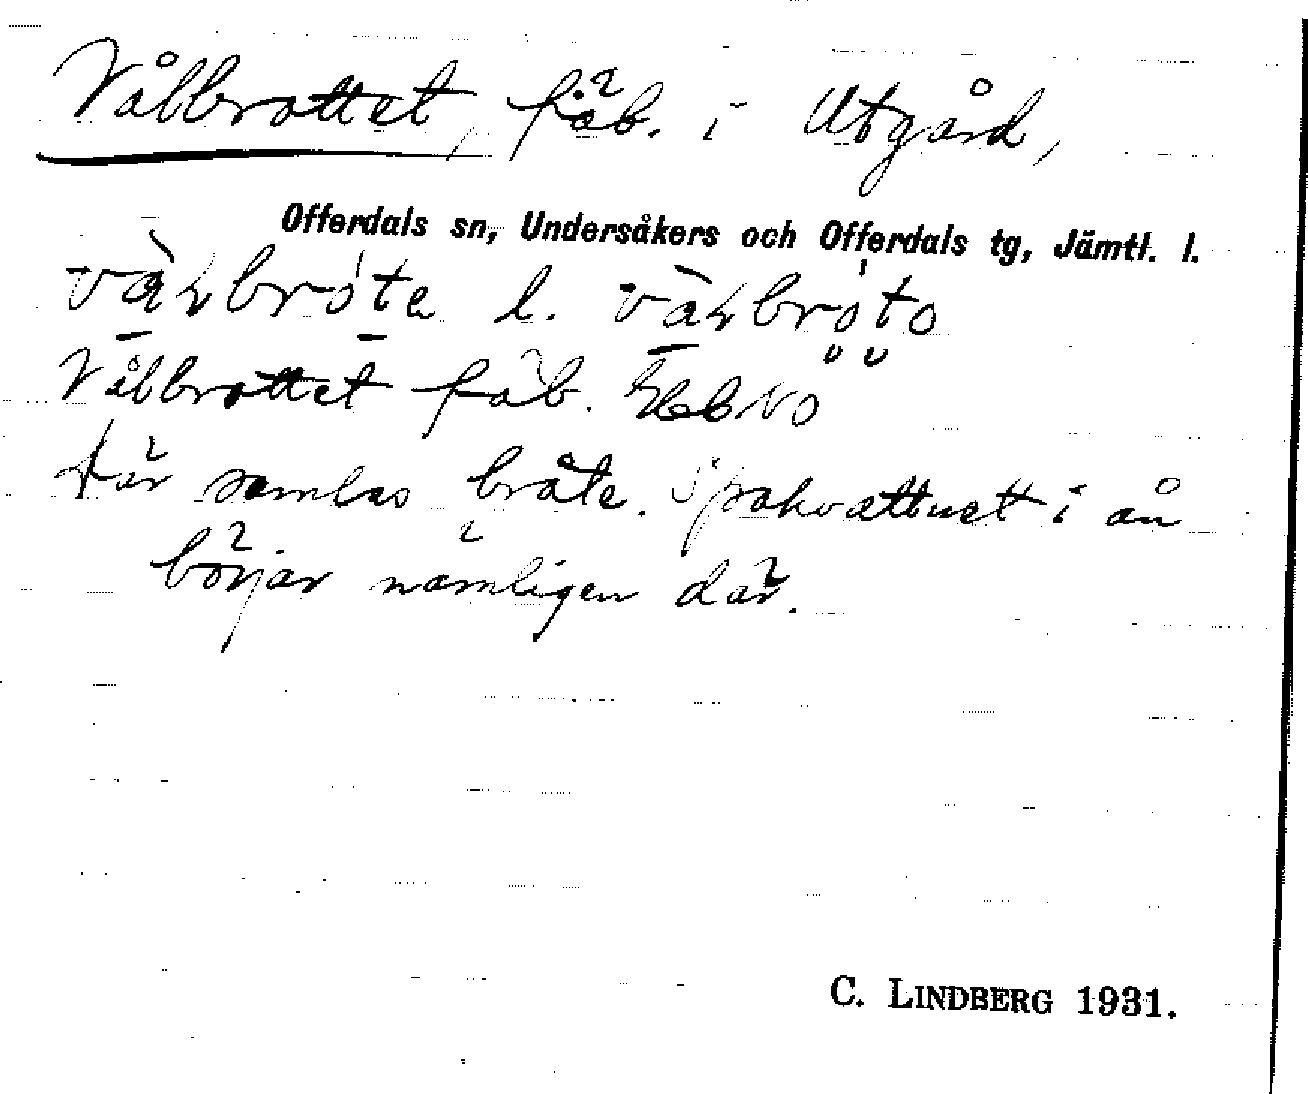 Vålbrottet, fäb. i Utgård,
Offerdals sn, Undersåkers och Offerdals tg, Jämtl. l.
l.
Vålbrottet fäb.
Där samlas bråte. Spakvattnet i ån
börjar nämligen där.
C. LINDBERG 1931.